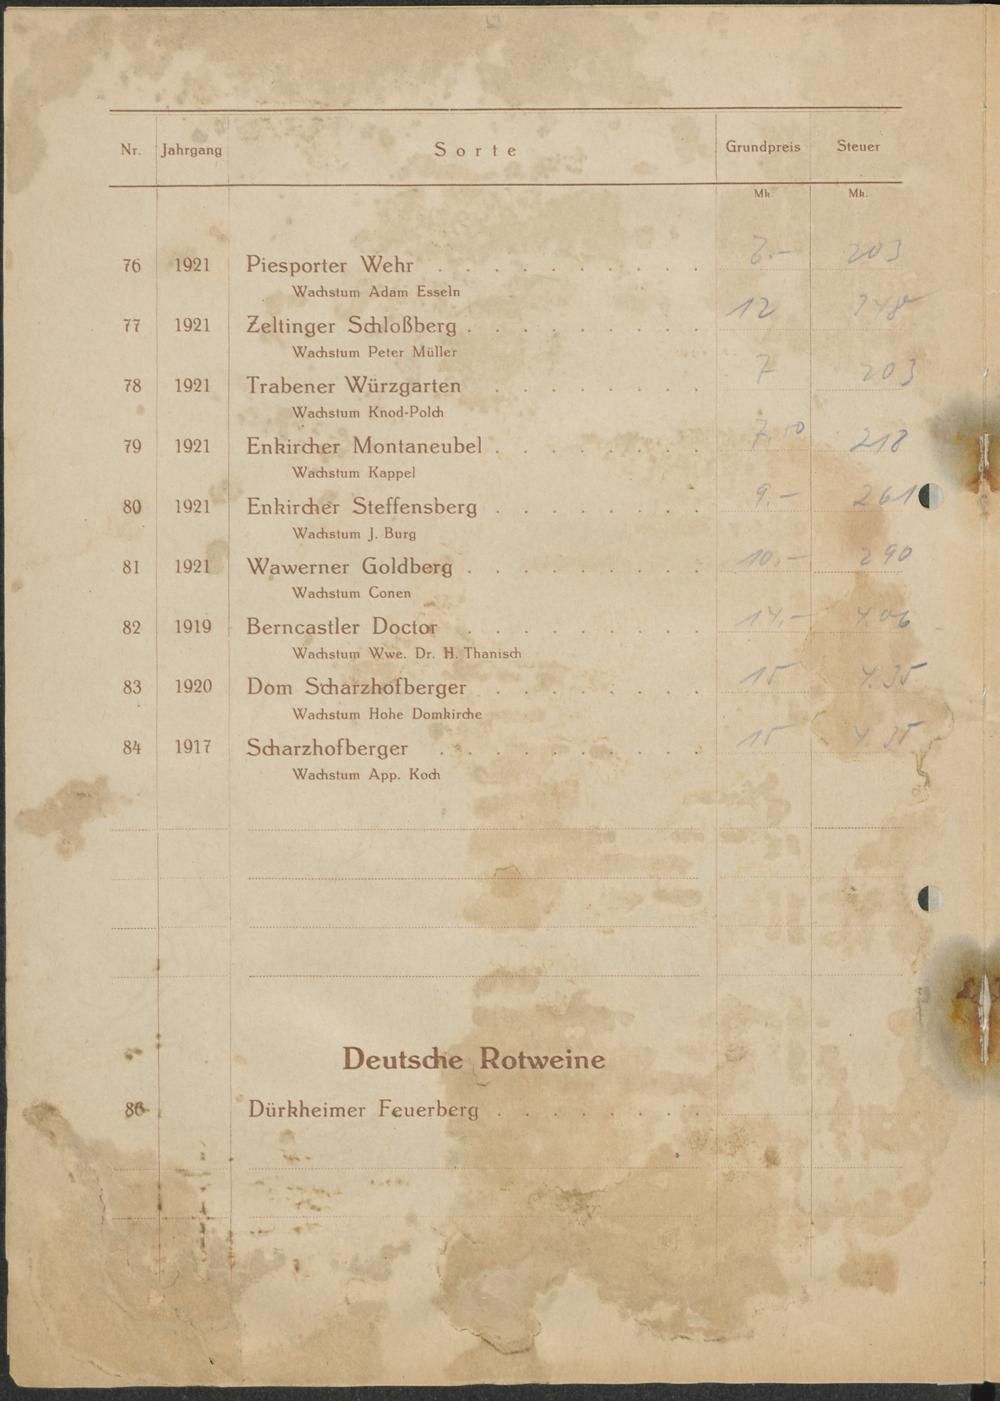 Nr. Jahrgang Sorte Grundpreis Steuer
Mk. Mk.
76 1921 Piesporter Wehr . . . . . . . . . . 203
Wachstum Adam Esseln
77 1921 Zeltinger Schloßberg . . . . . . . . . 12 348
Wachstum Peter Müller
78 1921 Trabener Würzgarten . . . . . . . . 7 203
Wachstum Knod-Polch
79 1921 Enkircher Montaneubel . . . . . . . . 7.50 218
Wachstum Kappel
80 1921 Enkircher Steffensberg . . . . . . . . 9.- 261
Wachstum J. Burg
81 1921 Wawerner Goldberg . . . . . . . . . 10.- 290
Wachstum Conen
82 1919 Berncastler Doctor . . . . . . . . . 14.- 4.06
Wachstum Wwe. Dr. H. Thanisch
83 1920 Dom Scharzhofberger . . . . . . . . 15 4.35
Wachstum Hohe Domkirche
84 1917 Scharzhofberger . . . . . . . . . . 15 4.35
Wachstum App. Koch
Deutsche Rotweine
86 Dürkheimer Feuerberg . . . . . . . .